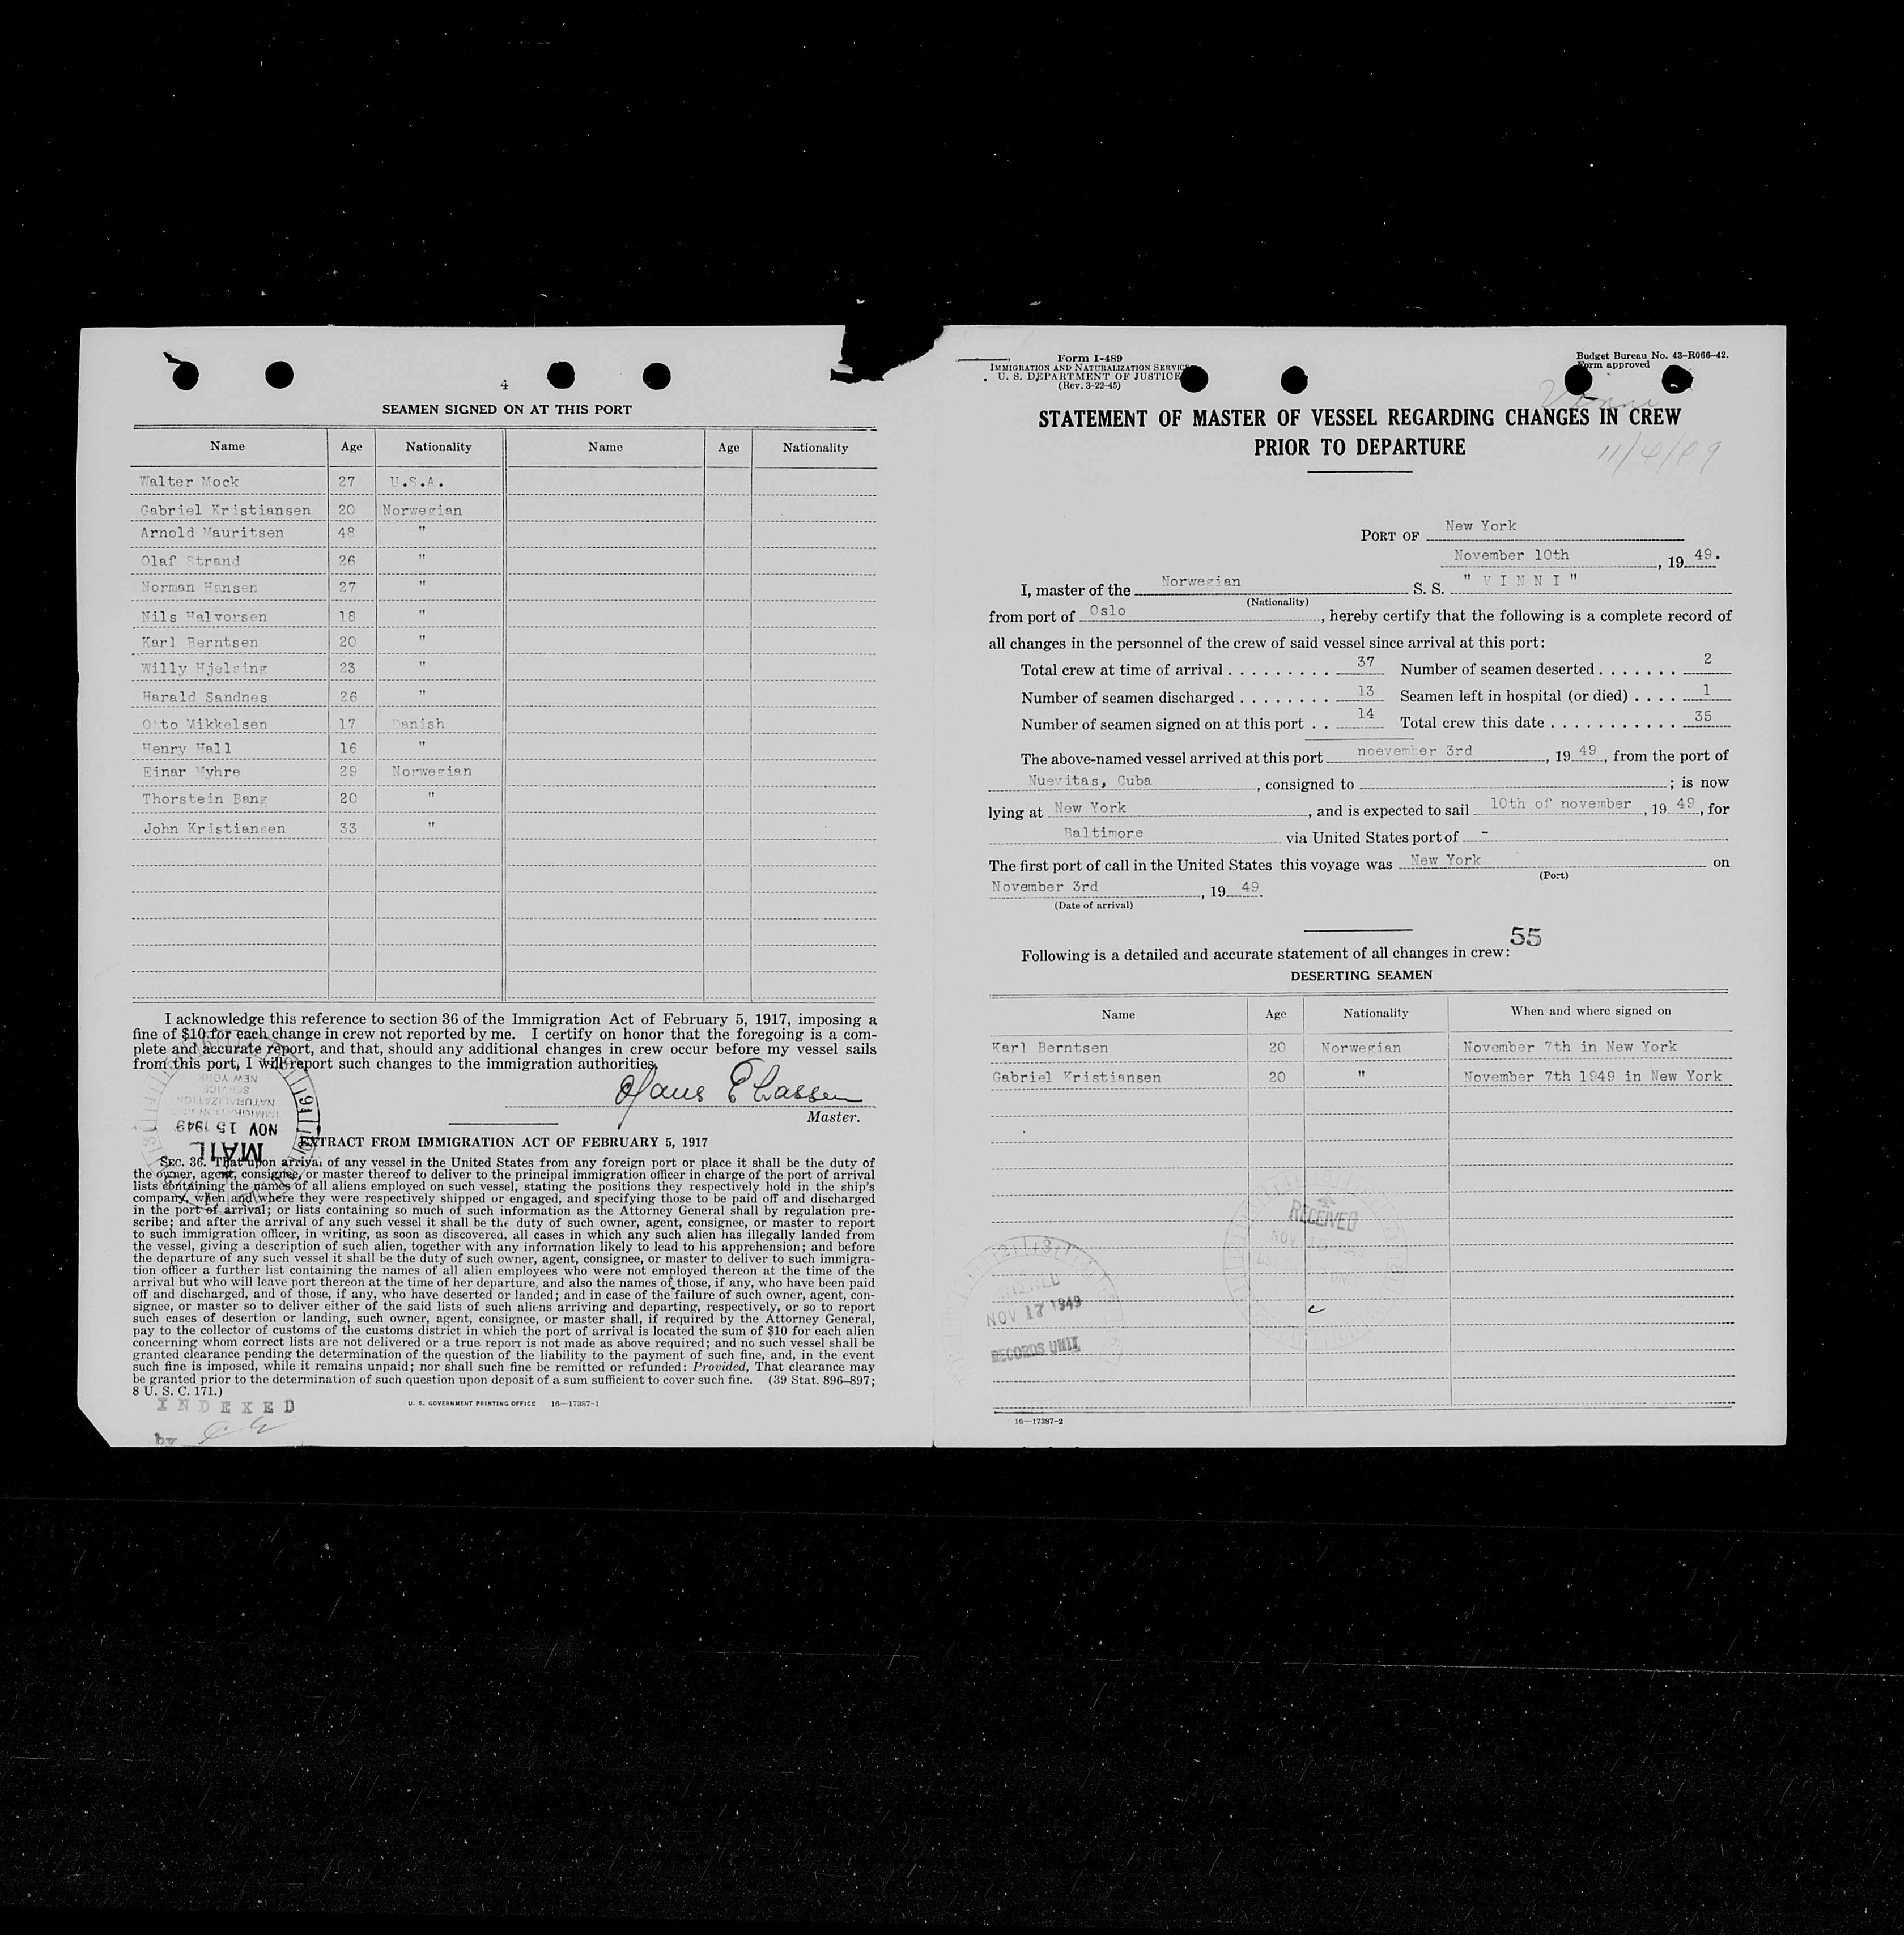 4
SEAMEN SIGNED ON AT THIS PORT
Name Age Nationality Name Age Nationality
Walter Mock 27 U.S.A.
Gabriel Kristiansen 20 Norwegian
Arnold Mauritsen 48 "
Olaf Strand 26 "
Norman Hansen 27 "
Nils Halvorsen 18 "
Karl Berntsen 20 "
Willy Hjelsing 23 "
Harald Sandnes 26 "
Otto Mikkelsen 17 Danish
Henry Hall 16 "
Einar Myhre 29 Norwegian
Thorstein Bang 20 "
John Kristiansen 33 "
I acknowledge this reference to section 36 of the Immigration Act of February 5, 1917, imposing a
fine of $10 for each change in crew not reported by me. I certify on honor that the foregoing is a com-
plete and accurate report, and that, should any additional changes in crew occur before my vessel sails
from this port, I will report such changes to the immigration authorities.
Hans Eliassen
Master.
NEW YORK
SERVICE
NATURALIZATION
IMMIGRATION AND
NOV 15 1949
MAIL
EXTRACT FROM IMMIGRATION ACT OF FEBRUARY 5, 1917
SEC. 36. That upon arrival of any vessel in the United States from any foreign port or place it shall be the duty of
the owner, agent, consignee, or master thereof to deliver to the principal immigration officer in charge of the port of arrival
lists containing the names of all aliens employed on such vessel, stating the positions they respectively hold in the ship's
company, when and where they were respectively shipped or engaged, and specifying those to be paid off and discharged
in the port of arrival; or lists containing so much of such information as the Attorney General shall by regulation pre-
scribe; and after the arrival of any such vessel it shall be the duty of such owner, agent, consignee, or master to report
to such immigration officer, in writing, as soon as discovered, all cases in which any such alien has illegally landed from
the vessel, giving a description of such alien, together with any information likely to lead to his apprehension; and before
the departure of any such vessel it shall be the duty of such owner, agent, consignee, or master to deliver to such immigra-
tion officer a further list containing the names of all alien employees who were not employed thereon at the time of the
arrival but who will leave port thereon at the time of her departure, and also the names of those, if any, who have been paid
off and discharged, and of those, if any, who have deserted or landed; and in case of the failure of such owner, agent, con-
signee, or master so to deliver either of the said lists of such aliens arriving and departing, respectively, or so to report
such cases of desertion or landing, such owner, agent, consignee, or master shall, if required by the Attorney General,
pay to the collector of customs of the customs district in which the port of arrival is located the sum of $10 for each alien
concerning whom correct lists are not delivered or a true report is not made as above required; and no such vessel shall be
granted clearance pending the determination of the question of the liability to the payment of such fine, and, in the event
such fine is imposed, while it remains unpaid; nor shall such fine be remitted or refunded: Provided, That clearance may
be granted prior to the determination of such question upon deposit of a sum sufficient to cover such fine. (39 Stat. 896–897;
8 U. S. C. 171.)
INDEXED
by
U. S. GOVERNMENT PRINTING OFFICE 16—17387-1
Form I-489
IMMIGRATION AND NATURALIZATION SERVICE
U. S. DEPARTMENT OF JUSTICE
(Rev. 3-22-45)
Budget Bureau No. 43–R066–42.
Form approved
Vinni
STATEMENT OF MASTER OF VESSEL REGARDING CHANGES IN CREW
PRIOR TO DEPARTURE
PORT OF New York
November 10th, 19 49.
I, master of the Norwegian S. S. " V I N N I "
(Nationality)
from port of Oslo, hereby certify that the following is a complete record of
all changes in the personnel of the crew of said vessel since arrival at this port:
Total crew at time of arrival . . . . . . . . . 37 Number of seamen deserted . . . . . . . 2
Number of seamen discharged . . . . . . . . 13 Seamen left in hospital (or died) . . . . 1
Number of seamen signed on at this port . . 14 Total crew this date . . . . . . . . . . . 35
The above-named vessel arrived at this port noevember 3rd, 19 49, from the port of
Nuevitas, Cuba, consigned to ; is now
lying at New York, and is expected to sail 10th of november, 19 49, for
Baltimore via United States port of -
The first port of call in the United States this voyage was New York on
(Port)
November 3rd, 19 49.
(Date of arrival)
55
Following is a detailed and accurate statement of all changes in crew:
DESERTING SEAMEN
Name Age Nationality When and where signed on
Karl Berntsen 20 Norwegian November 7th in New York
Gabriel Kristiansen 20 " November 7th 1949 in New York
RECEIVED
NOV
NOV 17 1949
RECORDS UNIT
16—17387-2